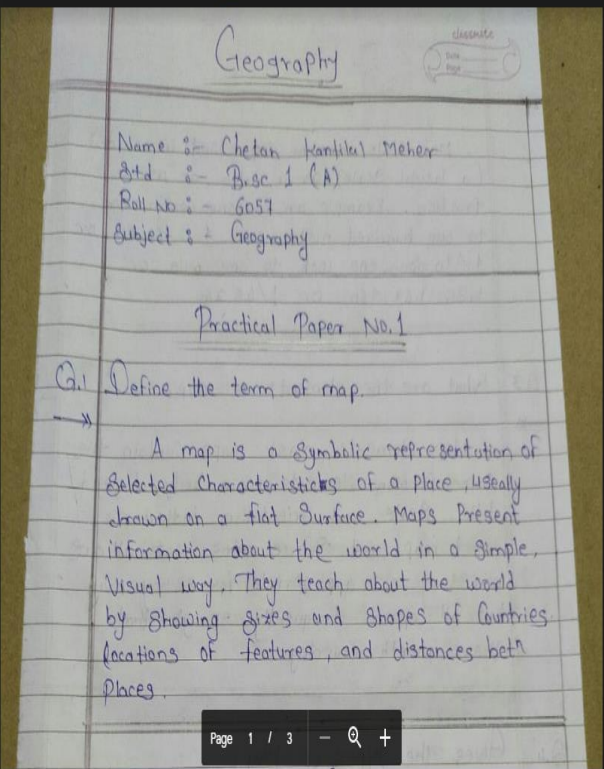 Geography
classmate
Date
Page
Name :- Chetan Kantilal Meher
Std :- B.sc 1 (A)
Roll No :- 6057
Subject :- Geography
Practical Paper No.1
Q.1 Define the term of map.
A map is a Symbolic representation of
Selected Characteristics of a Place, useally
drawn on a flat Surface. Maps Present
information about the world in a Simple,
Visual way. They teach about the world
by Showing Sizes and Shapes of Countries
locations of features, and distances betn
Places.
Page 1 / 3 − +